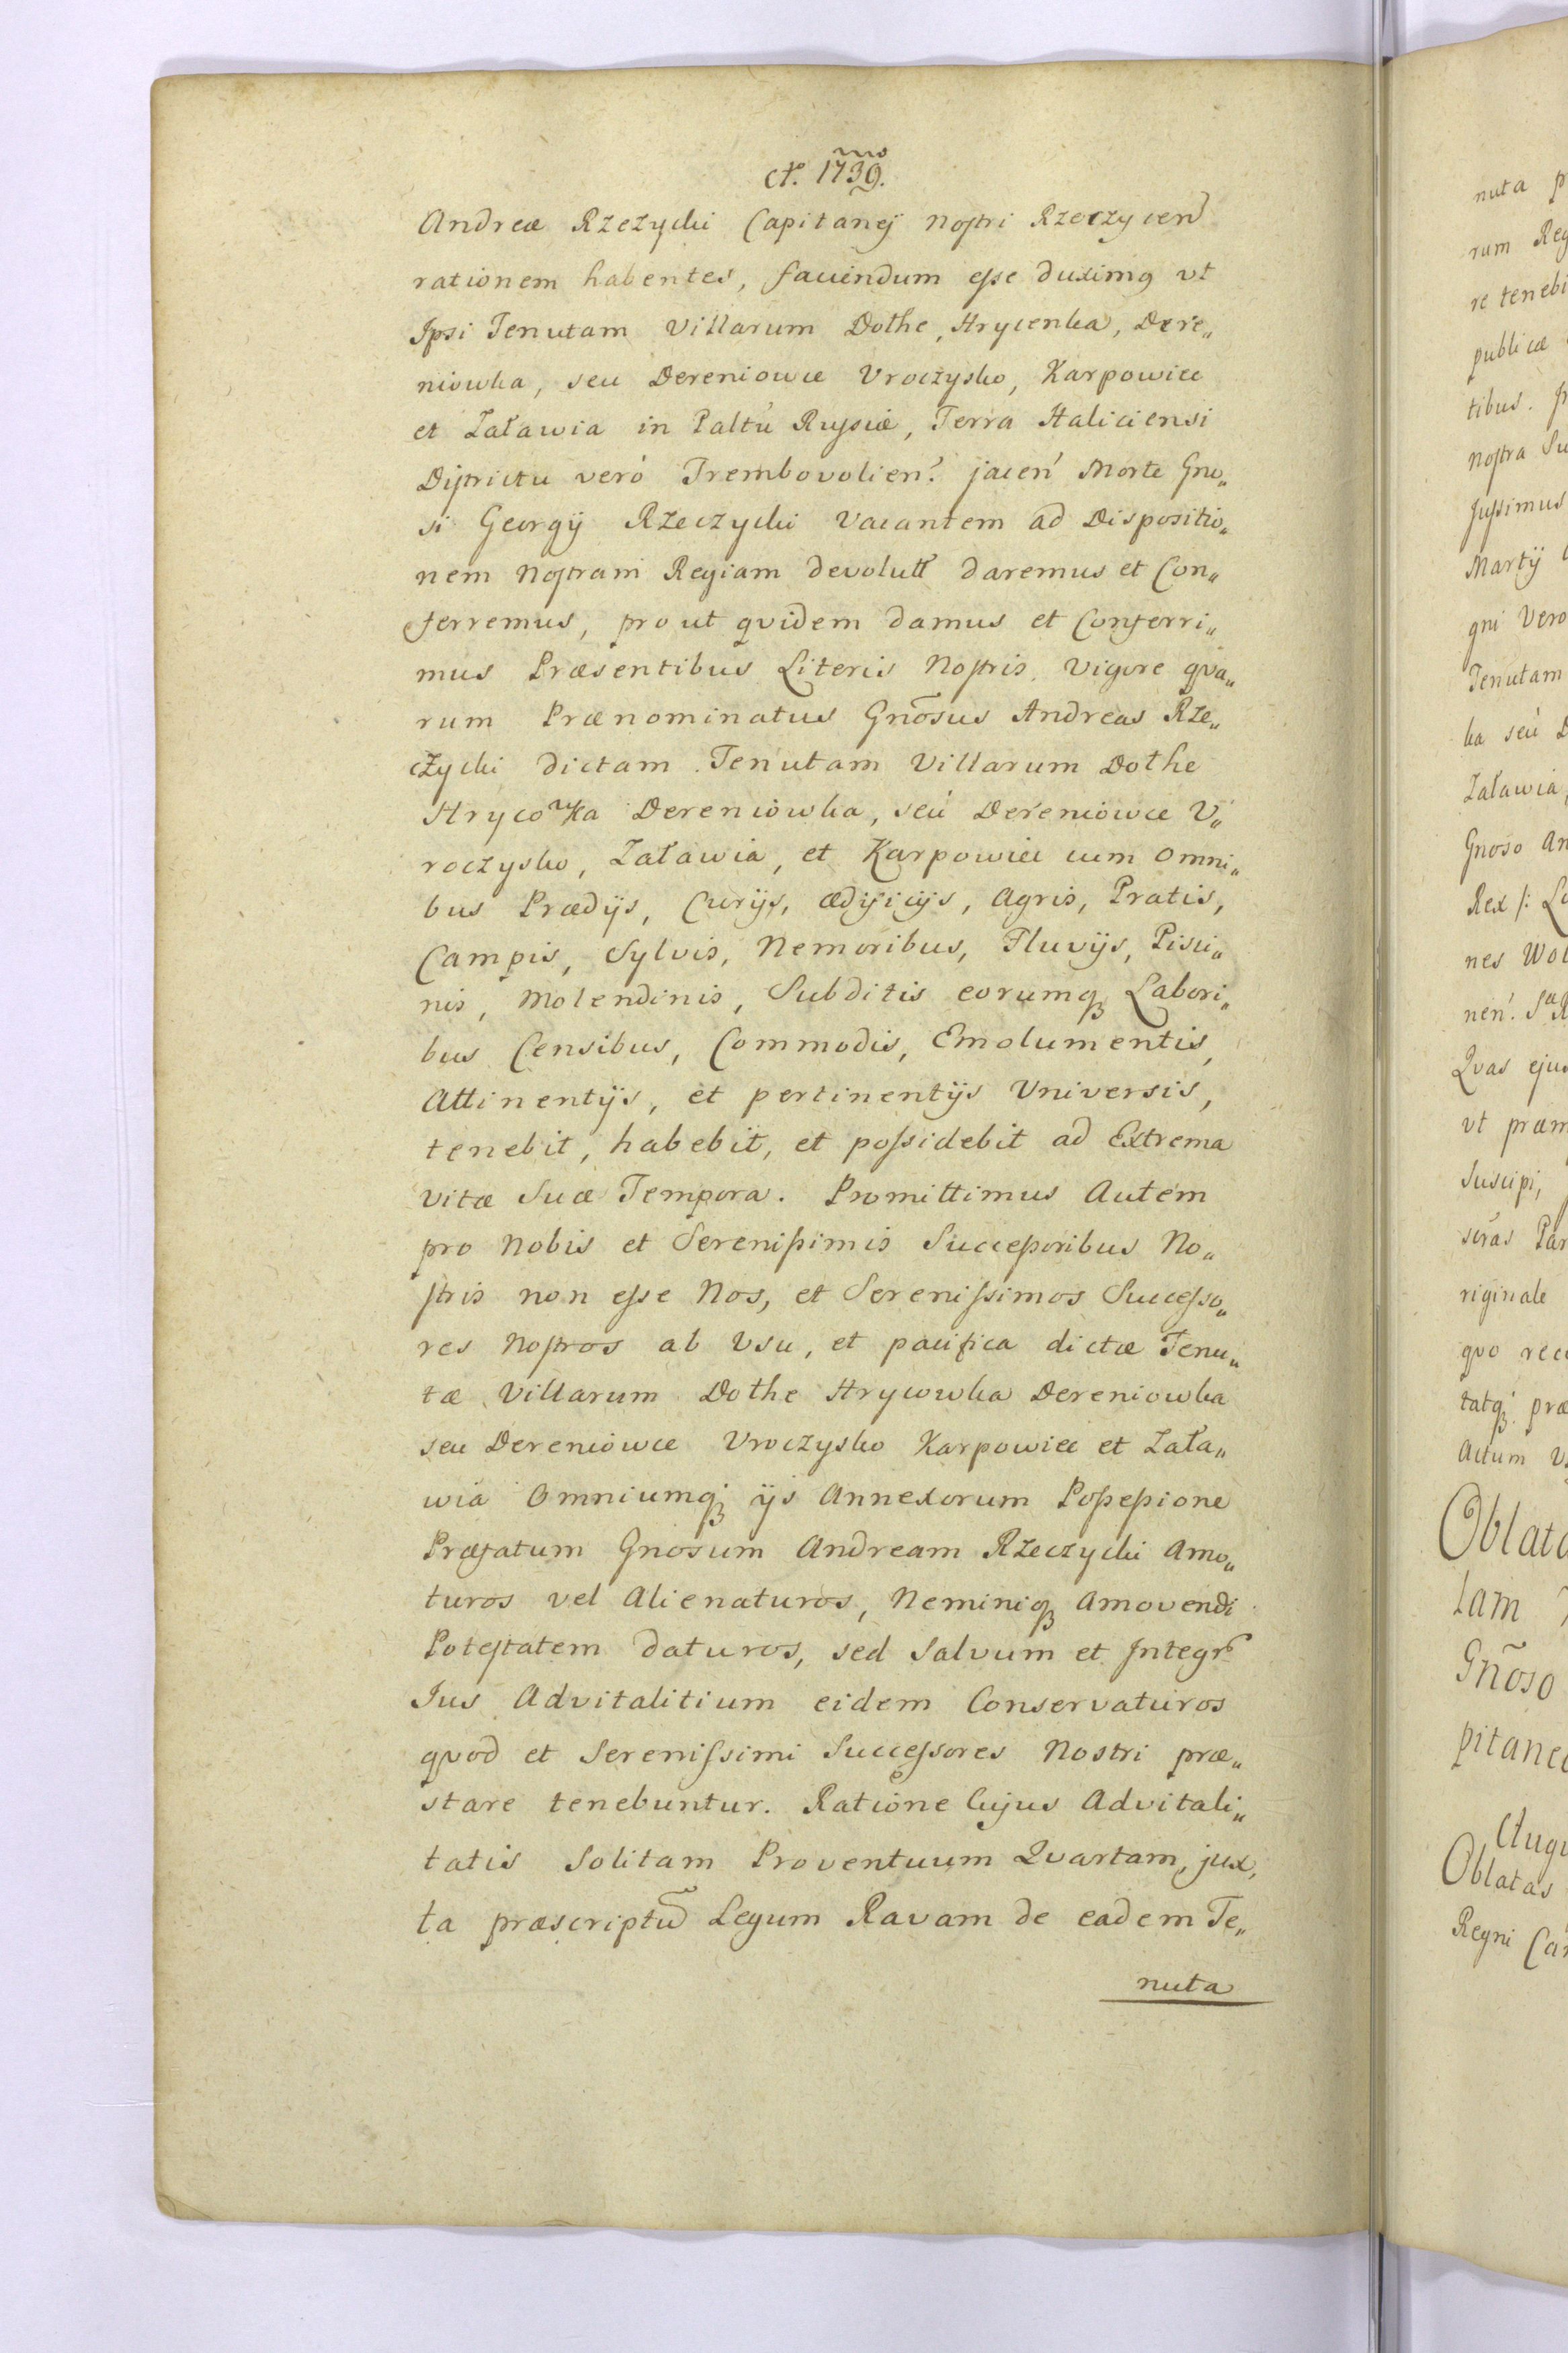 A. 1739.
mo
Andreæ Rzeczycki Capitanej Nostri Rzeczycen
rationem habentes, favendum esse duximq vt
Jpsi Tenutam Villarum Dothe, Hrycenka, Dere„
niowka, seu Dereniowce Vroczysko, Karpowice
et Załawia in Paltu Russiæ, Terra Haliciensi
Districtu verò Trembovolien. jacen Morte Gno„
si Georgij Rzeczycki Vacantem ad Dispositio„
nem Nostram Regiam devolutt daremus et Con„
ferremus, prout qvidem damus et Conferri„
mus Præsentibus Literis Nostris. Vigore qva„
rum Prænominatus Gnosus Andreas Rze„
czycki dictam Tenutam Villarum Dothe
Hrycowka Dereniowka, seù Dereniowce V„
roczysko, Załawia, et Karpowice cum omni„
bus Prædijs, Curijs, ædificijs, Agris, Pratis,
Campis, Sylvis, Nemoribus, Fluvijs, Pisci„
nis, Molendinis, Subditis eorumq Labori„
bus Censibus, Commodis, Emolumentis,
Attinentijs, et pertinentijs Universis,
tenebit, habebit, et possidebit ad Extrema
vitæ Suæ Tempora. Promittimus Autem
pro Nobis et Serenissimis Successoribus No„
stris non esse Nos, et Serenissimos Successo„
res Nostros ab Vsu, et pacifica dictæ Tenu„
tæ Villarum Dothe Hrycowka Dereniowka
seu Dereniowce Vroczysko Karpowice et Zała„
wia Omniumq ijs Annexorum Possessione
Præfatum Gnosum Andream Rzeczycki Amo„
turos vel Alienaturos, Neminiq Amovendi
Potestatem daturos, sed Salvum et Jntegr
Jus Advitalitium eidem Conservaturos
qvod et Serenissimi Successores Nostri præ„
stare tenebuntur. Ratione Cujus Advitali„
tatis Solitam Proventuum Qvartam, jux„
ta præscriptu Legum Ravam de eadem Te„
nuta
nuta p
rum Reg
re tenebi
publicæ
tibus.
nostra Su
Jussimus
Martij
gni Vero
Tenutam
ka seù D
Załawia,
Gnoso An
Rex /: Lo
nes Wol
nen. S R
Qvas ejus
vt præm
Suscipi,
scras Par
riginale
qvo rece
tatq præ
Actum V
Oblata
lam
Gnoso
pitane
Augu
Oblatas
Regni Can